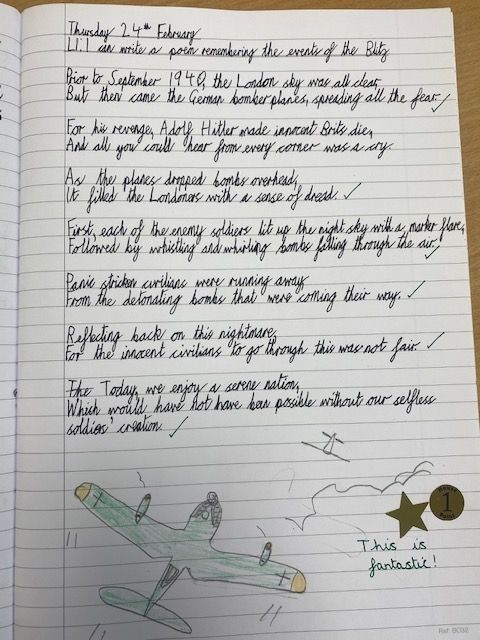 Thursday 24th February
LI: I can write a poem remembering the events of the Blitz
Prior to September 1940, the London sky was all clear,
But then came the German bomberplanes, spreading all the fear.
For his revenge, Adolf Hitler made innocent Brits die,
And all you could hear from every corner was a cry.
As the planes dropped bombs overhead,
It filled the Londoners with a sense of dread.
First, each of the enemy soldiers lit up the night sky with a marker flare,
Followed by whistling and whirling bombs falling through the air.
Panic stricken civilians were running away
From the detonating bombs that were coming their way.
Reflecting back on this nightmare,
For the innocent civilians to go through this was not fair.
The Today, we enjoy a serene nation,
Which would have not have been possible without our selfless
soldiers' creation.
1
This is
fantastic!
Ref: BC32